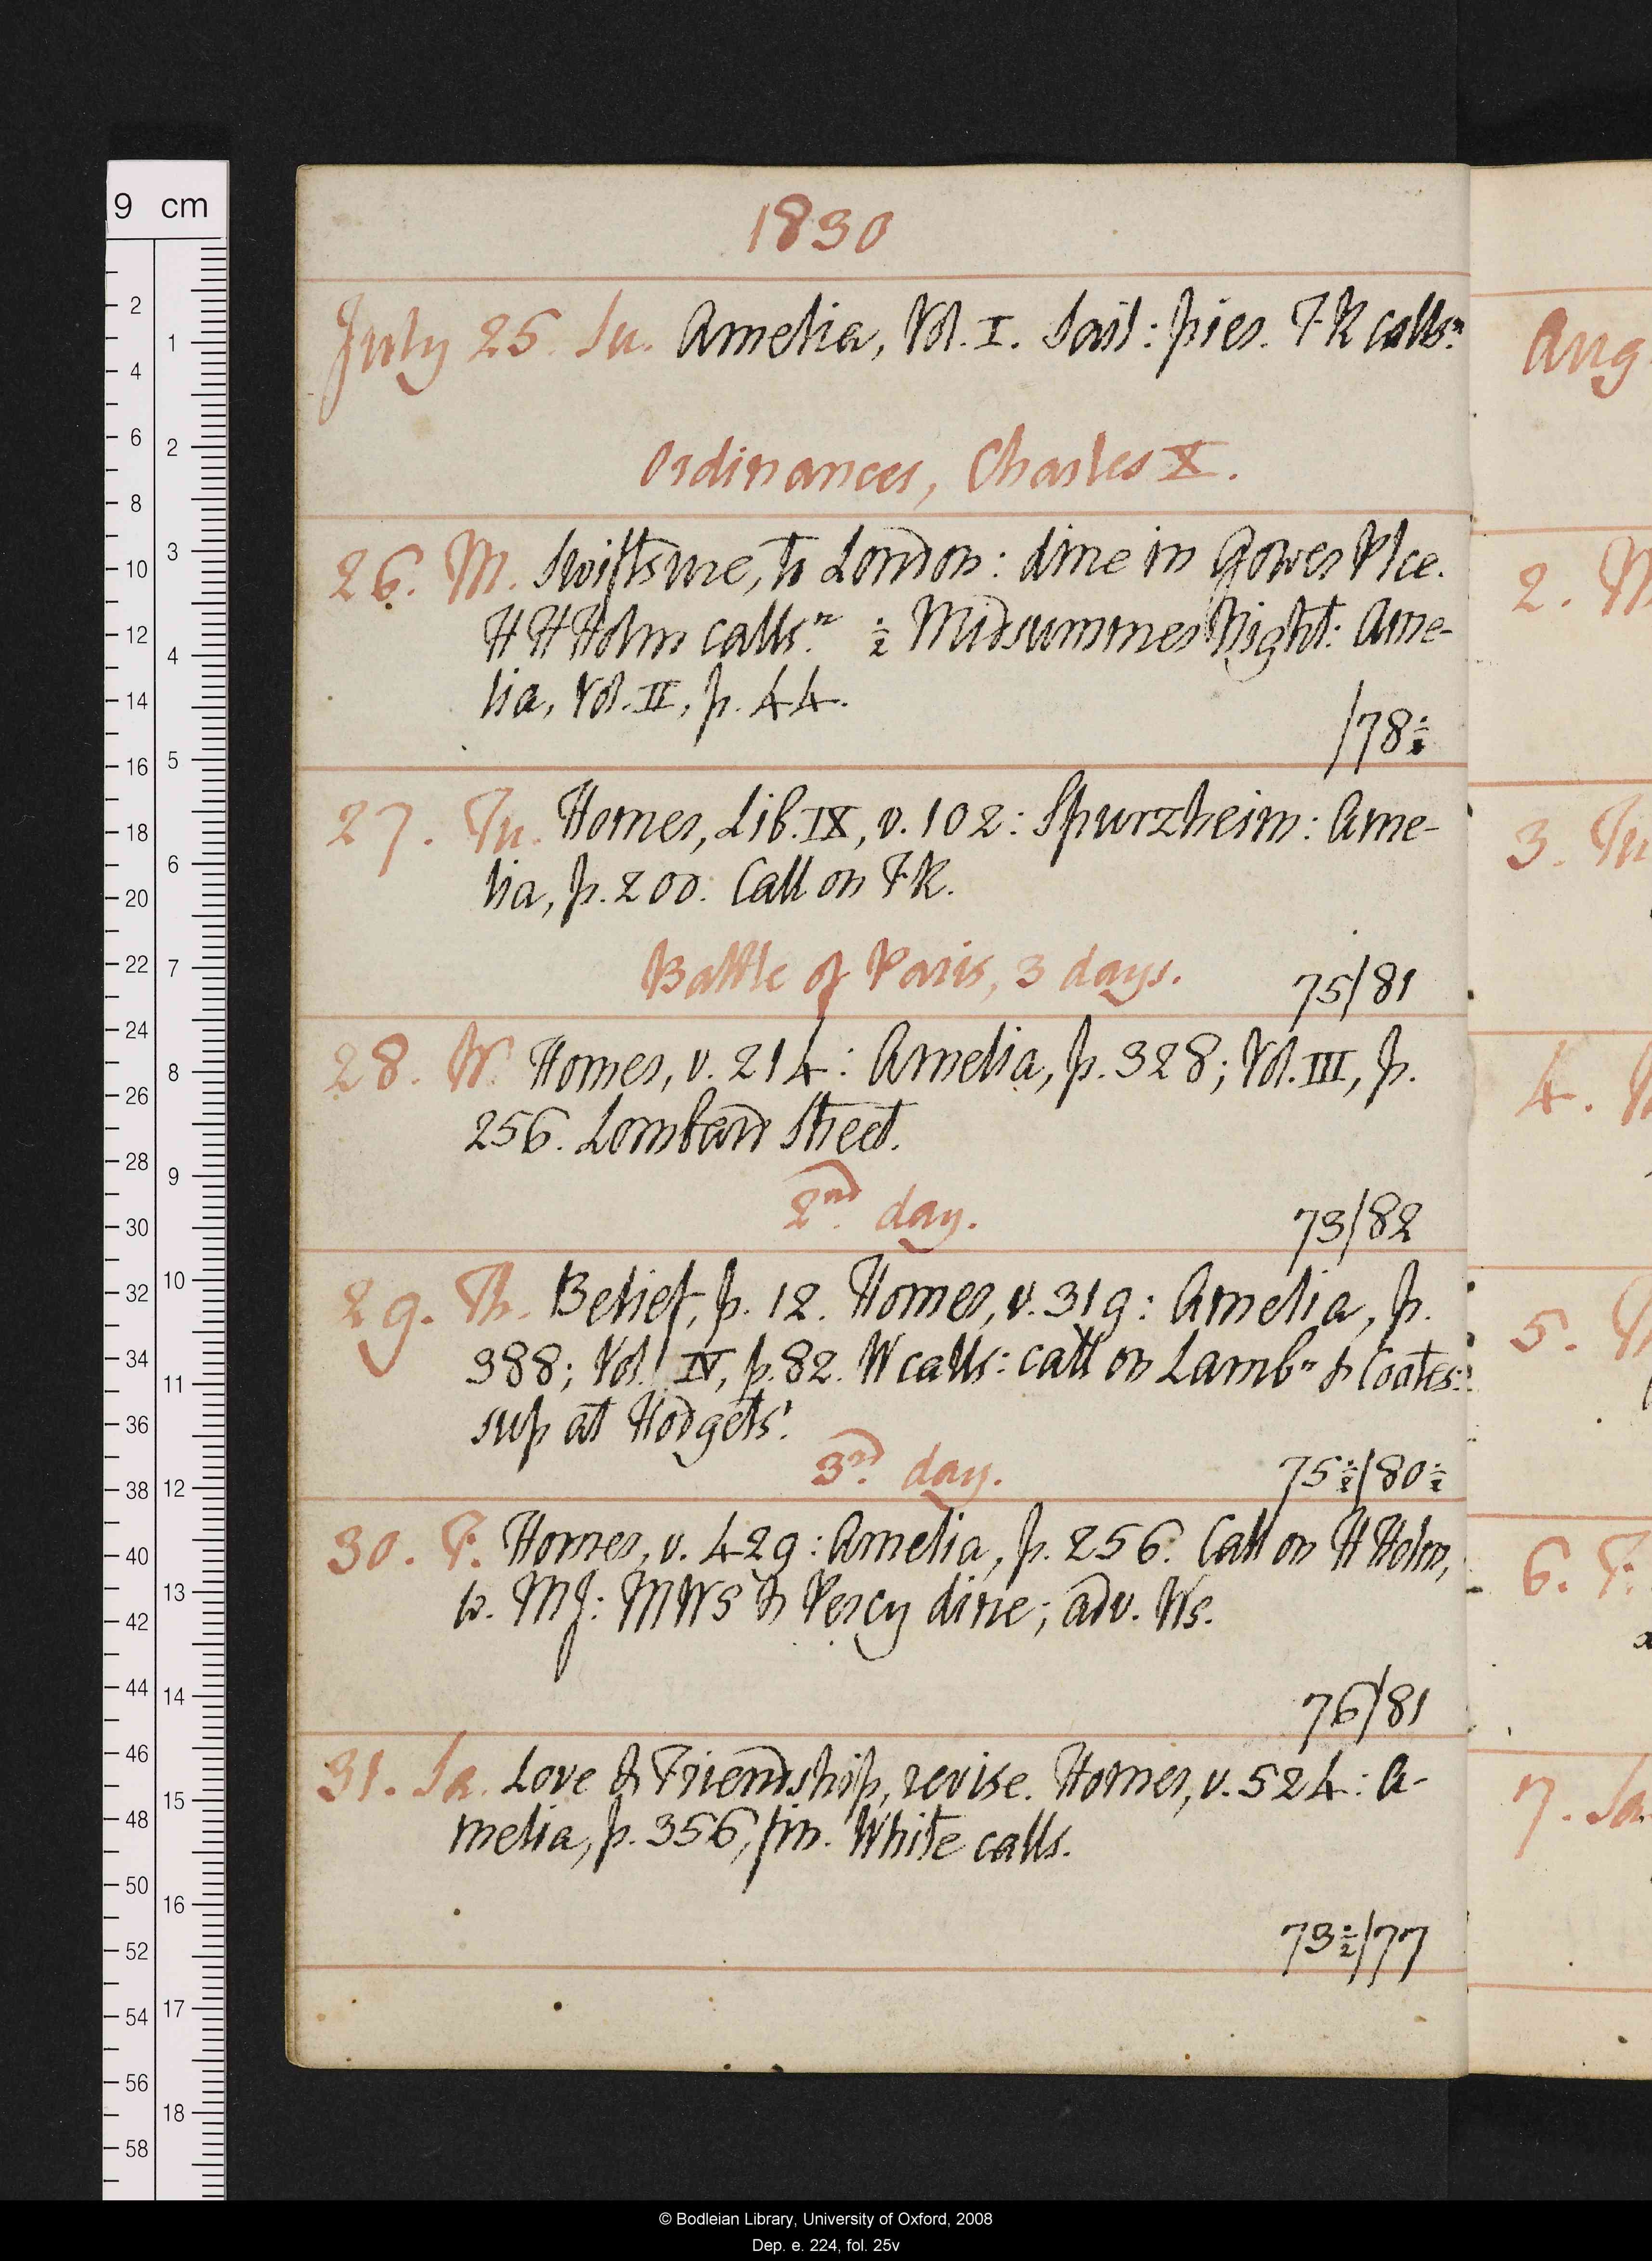 1830
July 25. Su. Amelia, Vol. I. Sail: pier. FK calls.n
Ordinances, Charles X.
26. M. Swiftsure, to London: dine in Gower Plce.
H H Holm calls.n ½ Midsummer Night: Ame-
lia, Vol. II, p. 44.
/78½
27. Tu. Homer, Lib. IX, v. 102: Spurzheim: Ame-
lia, p. 200. Call on FK.
Battle of Paris, 3 days.
75/81
28. W. Homer, v. 214: Amelia, p. 328; Vol. III, p.
256. Lombard Street.
2nd day.
73/82
29. Th. Belief, p. 12. Homer, v. 319: Amelia, p.
388; Vol. IV, p. 82. W calls: call on Lamb n & Coates:
sup at Hodgets'.
3rd day.
75½/80½
30. F. Homer, v. 429: Amelia, p. 256. Call on H Holm,
w. MJ: MWS & Percy dine; adv. Ws.
76/81
31. Sa. Love & Friendship, revise. Homer, v. 524: A-
melia, p. 356, fin. White calls.
73½/77
Aug
2. M
3. Tu
4.
5.
6. F.
7. Sa.
9 cm
2
4
6
8
10
12
14
16
18
20
22
24
26
28
30
32
34
36
38
40
42
44
46
48
50
52
54
56
58
1
2
3
4
5
6
7
8
9
10
11
12
13
14
15
16
17
18
© Bodleian Library, University of Oxford, 2008
Dep. e. 224, fol. 25v